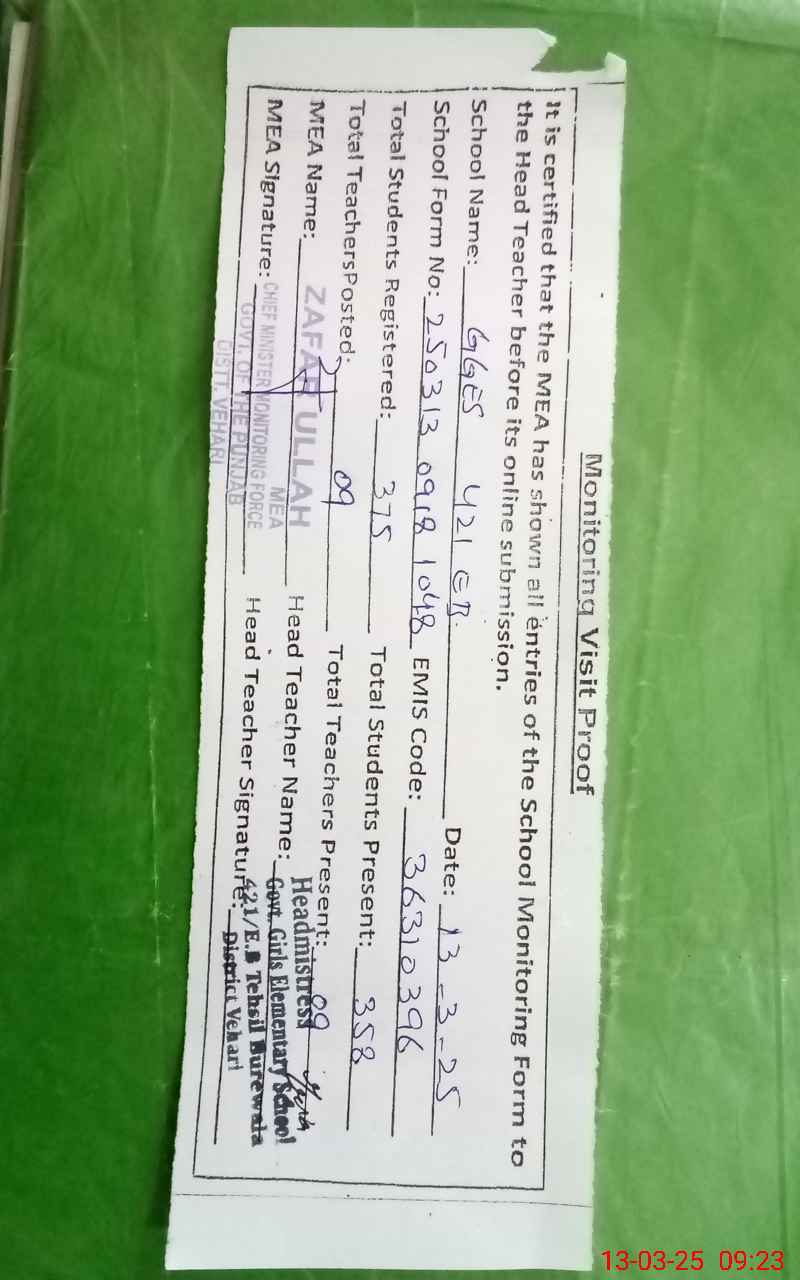 Monitoring Visit Proof
It is certified that the MEA has shown all entries of the School Monitoring Form to
the Head Teacher before its online submission.
School Name: GGES 421 EB. Date: 13-3-25
School Form No: 250313 0918 1048 EMIS Code: 36310396
Total Students Registered: 375 Total Students Present: 358
Total TeachersPosted: 09 Total Teachers Present: 09
MEA Name: ZAFAR ULLAH Head Teacher Name: Headmistress
MEA
MEA Signature: CHIEF MINISTER MONITORING FORCE Head Teacher Signature: Govt. Girls Elementary School
GOVT. OF THE PUNJAB 421/E.B Tehsil Burewala
DISTT. VEHARI District Vehari
13-03-25 09:23